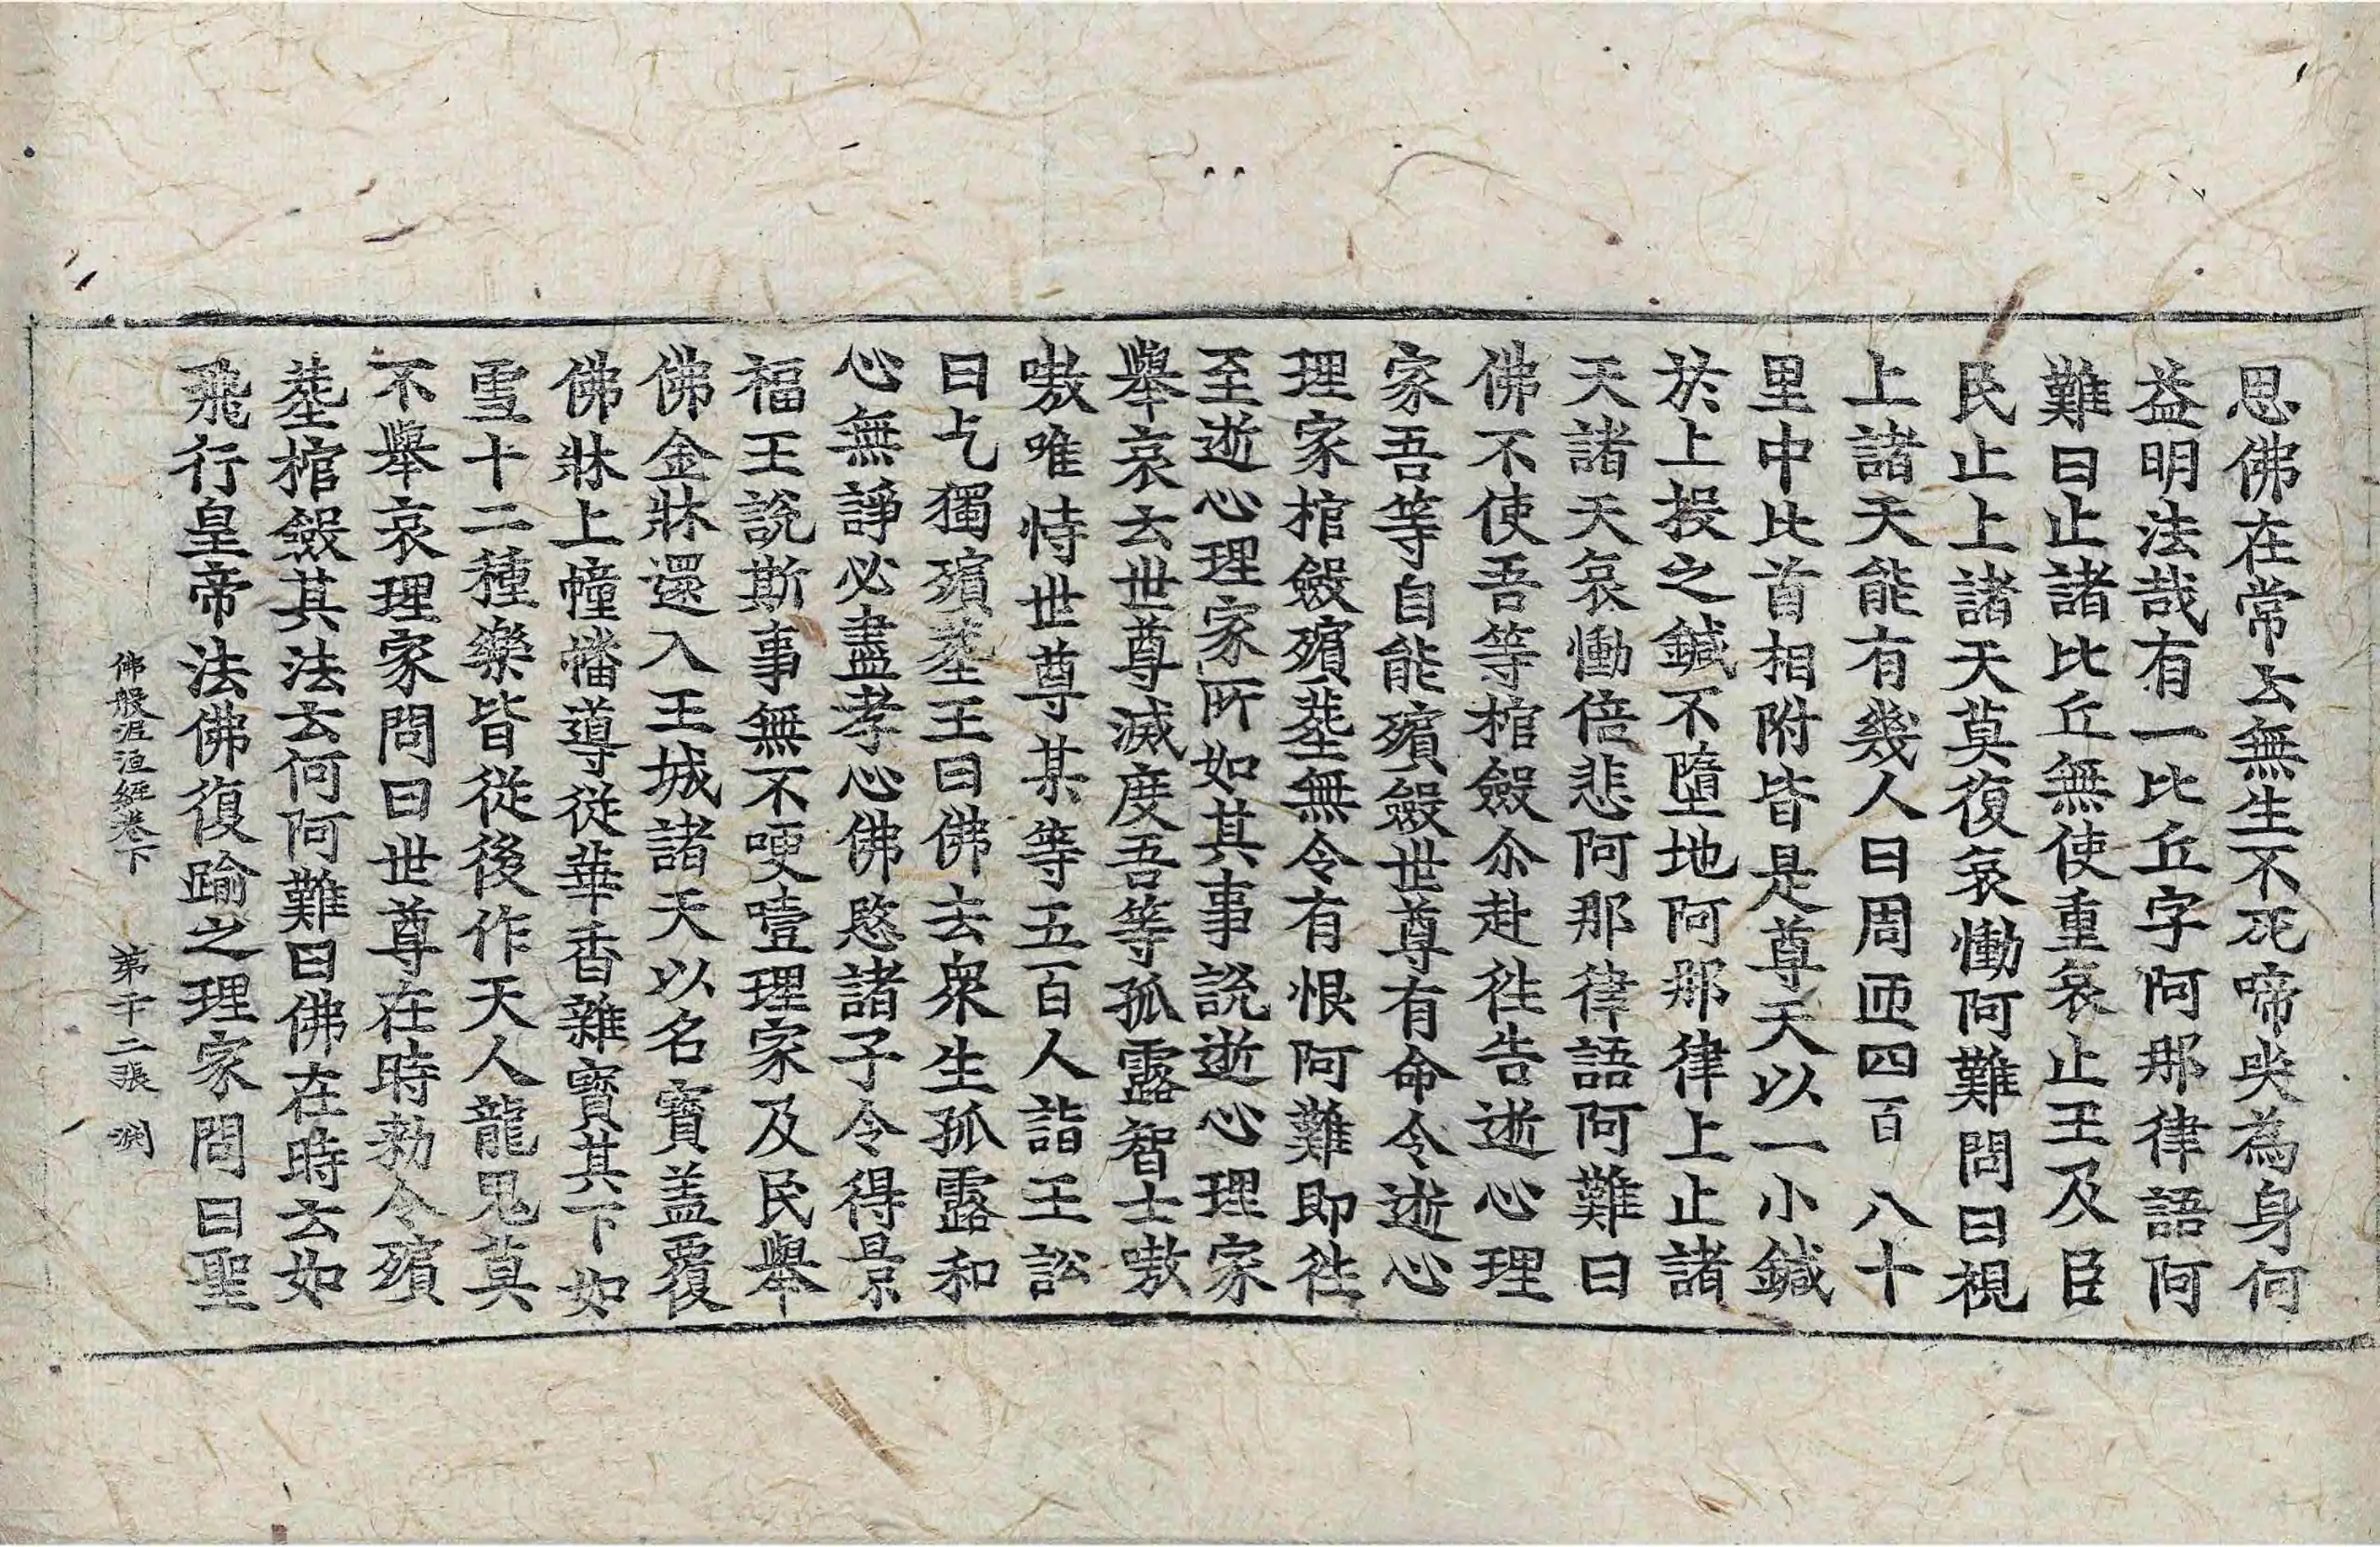 思佛在常云無生不死啼哭為身何
益明法哉有一比丘字阿那律語阿
難曰止諸比丘無使重哀止王及臣
民止上諸天莫復哀慟阿難問曰視
上諸天能有幾人曰周匝四百八十
里中比首相附皆是尊天以一小鍼
於上投之鍼不墮地阿那律上止諸
天諸天哀慟倍悲阿那律語阿難曰
佛不使吾等棺斂尒赴往告逝心理
家吾等自能殯斂世尊有命令逝心
理家棺斂殯葬無令有恨阿難即往
至逝心理家所如其事說逝心理家
舉哀云世尊滅度吾等孤露智士嗷
嗷唯恃世尊某等五百人詣王訟
曰乞獨殯葬王曰佛去衆生孤露和
心無諍必盡孝心佛愍諸子令得景
福王說斯事無不哽噎理家及民舉
佛金牀還入王城諸天以名寶盖覆
佛牀上幢幡導從華香雜寶其下如
雪十二種樂皆從後作天人龍鬼莫
不舉哀理家問曰世尊在時勑令殯
葬棺斂其法云何阿難曰佛在時云如
飛行皇帝法佛復踰之理家問曰聖
佛般泥洹經卷下 第卄二張 淵